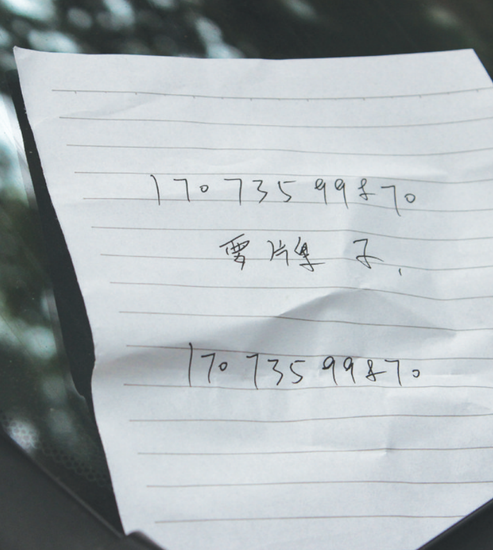 170 735 99870
要牌子,
170 735 99870